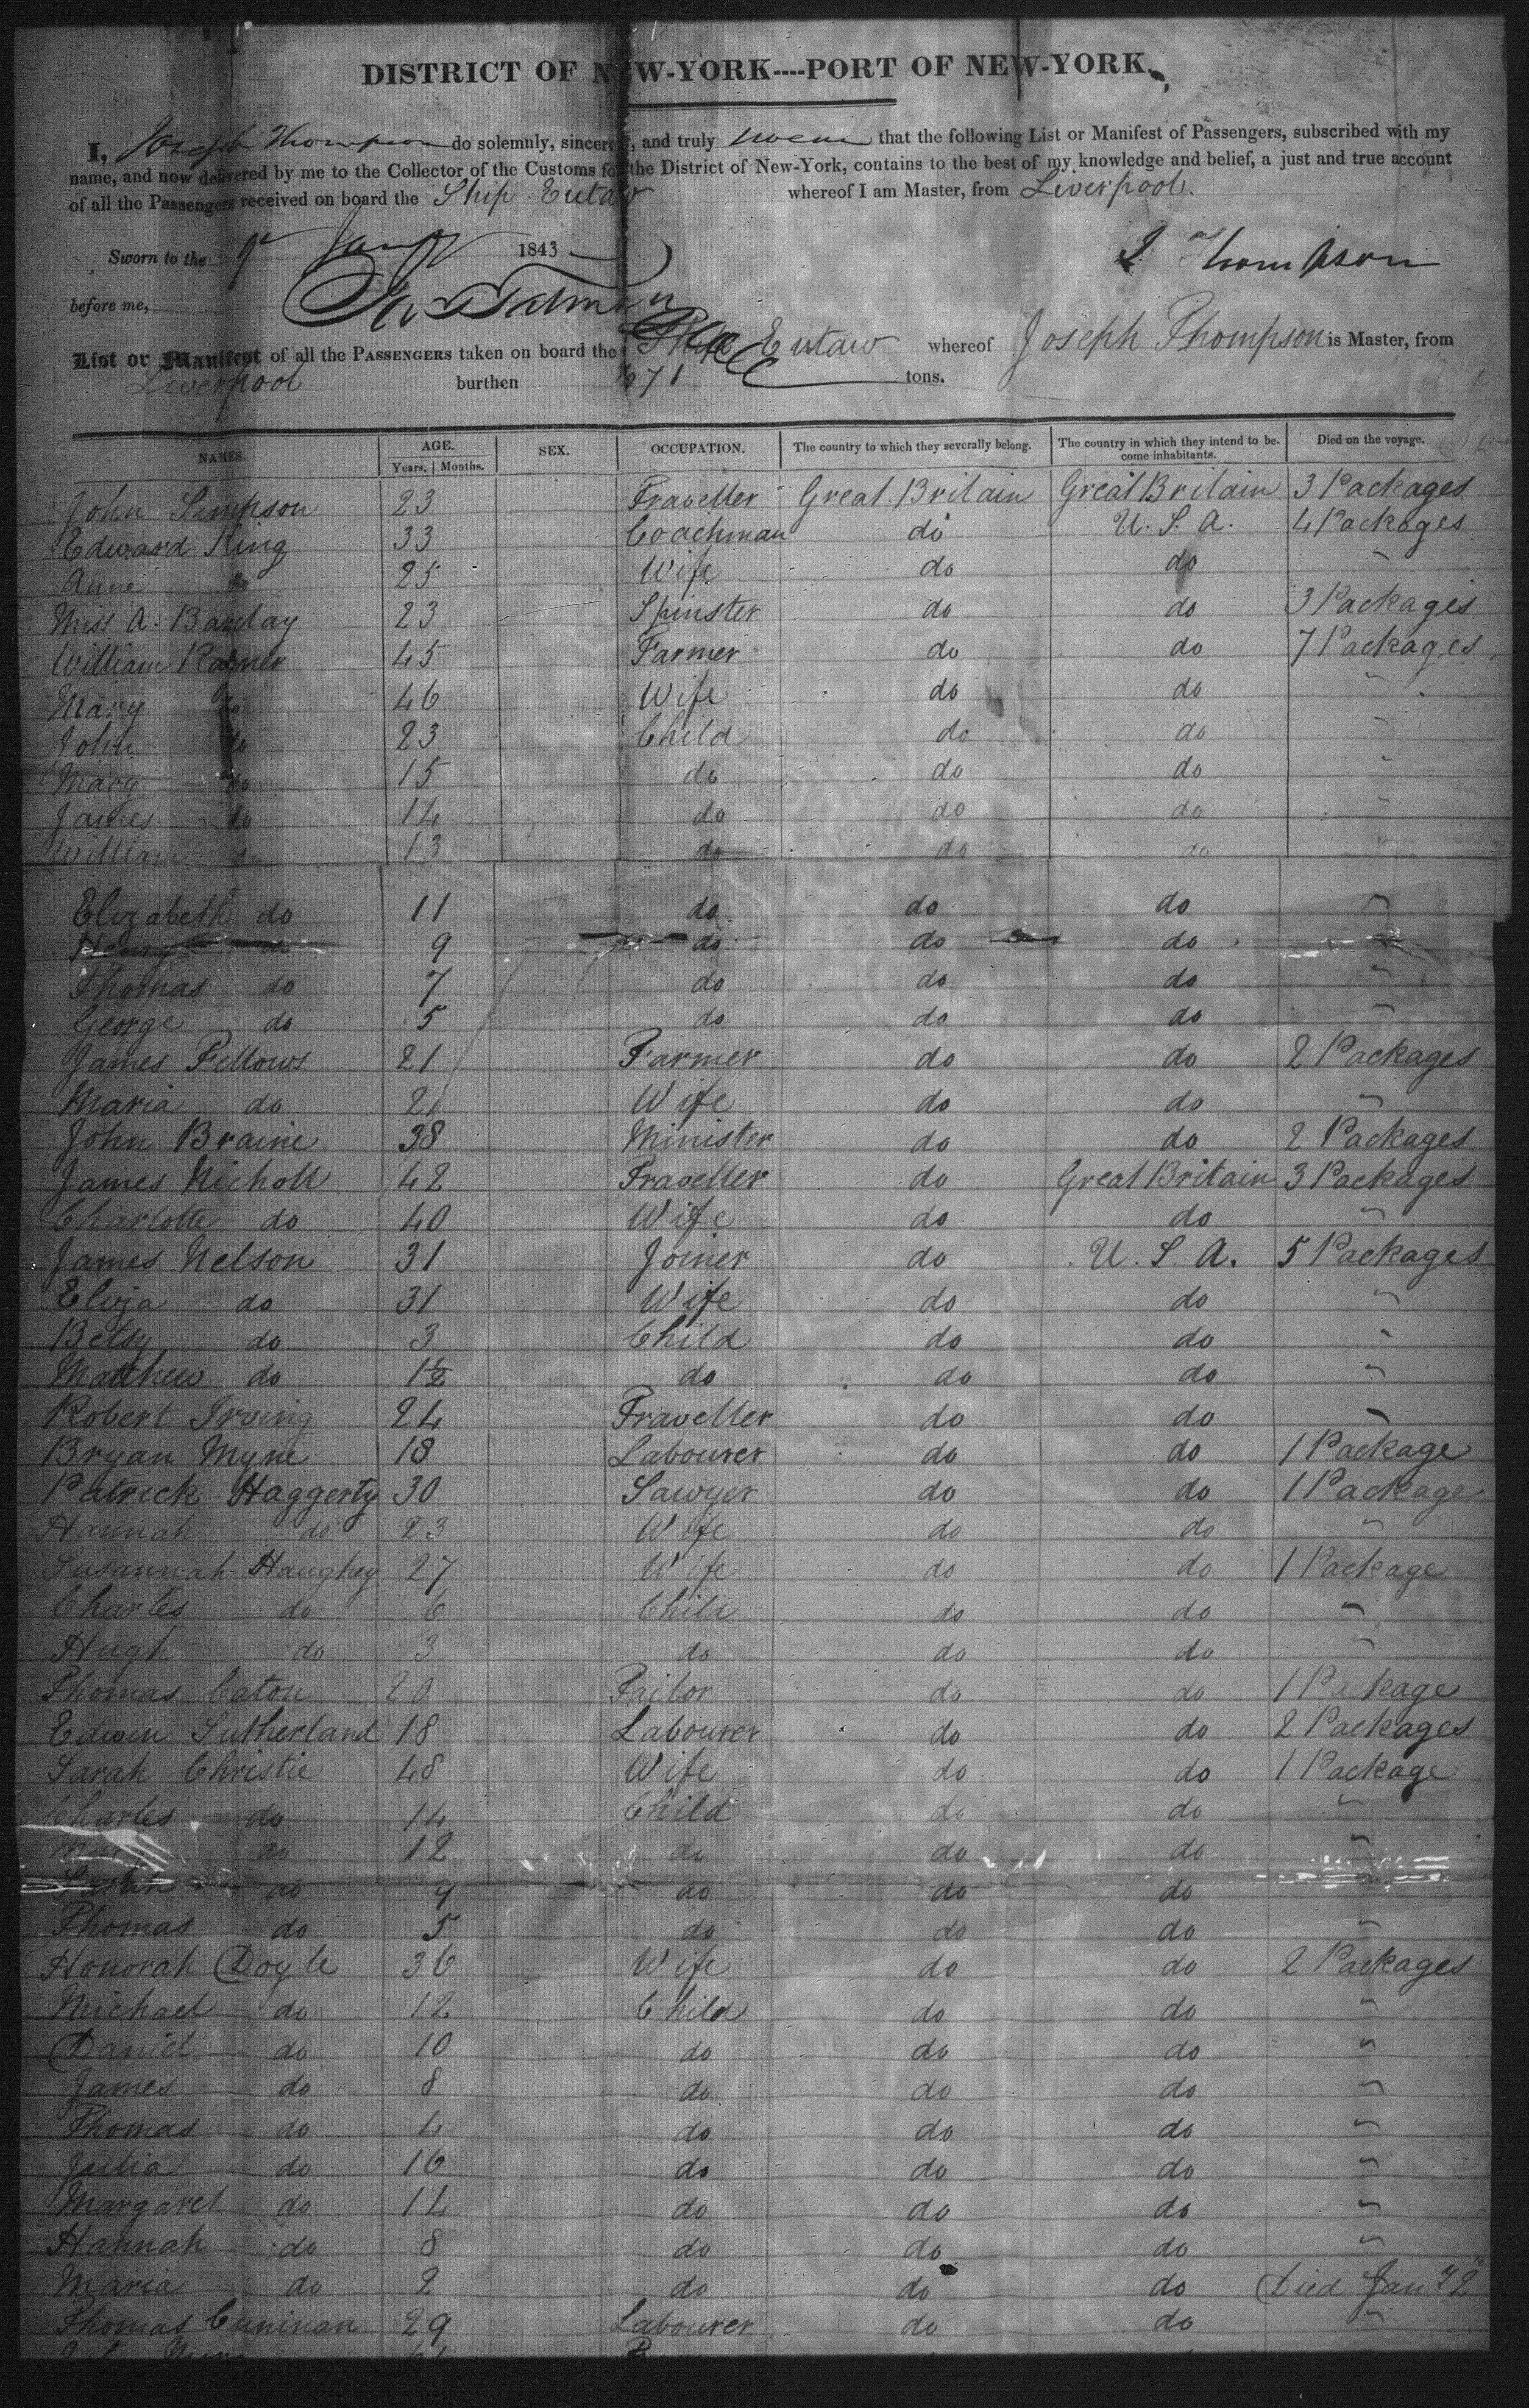 DISTRICT OF NEW-YORK----PORT OF NEW-YORK.
I, Joseph Thompson do solemnly, sincerely, and truly swear that the following List or Manifest of Passengers, subscribed with my
name, and now delivered by me to the Collector of the Customs for the District of New-York, contains to the best of my knowledge and belief, a just and true account
of all the Passengers received on board the Ship Eutaw whereof I am Master, from Liverpool.
Sworn to the 9 Jany 1843
J Thompson
before me,
List or Manifest of all the PASSENGERS taken on board the Ship Eutaw whereof Joseph Thompson is Master, from
Liverpool burthen 671 tons.
NAMES. AGE. SEX. OCCUPATION. The country to which they severally belong. The country in which they intend to be- Died on the voyage.
Years. | Months. come inhabitants.
John Simpson 23 Traveller Great Britain Great Britain 3 Packages
Edward King 33 Coachman do U. S. A. 4 Packages
Anne do 25 Wife do do "
Miss A. Barclay 23 Spinster do do 3 Packages
William 45 Farmer do do 7 Packages
Mary do 46 Wife do do "
John do 23 Child do do "
Mary do 15 do do do "
James do 14 do do do "
William do 13 do do do
Elizabeth do 11 do do do "
Henry do 9 do do do "
Thomas do 7 do do do "
George do 5 do do do "
James Fellows 21 Farmer do do 2 Packages
Maria do 21 Wife do do "
John Braine 38 Minister do do 2 Packages
James Nicholl 42 Traveller do Great Britain 3 Packages
Charlotte do 40 Wife do do "
James Nelson 31 Joiner do U. S. A. 5 Packages
Eliza do 31 Wife do do "
Betsy do 3 Child do do "
Matthew do 1½ do do do "
Robert Irving 24 Traveller do do "
Bryan Myne 18 Labourer do do 1 Package
Patrick Haggerty 30 Sawyer do do 1 Package
Hannah do 23 Wife do do "
Susannah Haughey 27 Wife do do 1 Package
Charles do 6 Child do do "
Hugh do 3 do do do "
Thomas Caton 20 Tailor do do 1 Package
Edwin Sutherland 18 Labourer do do 2 Packages
Sarah Christie 48 Wife do do 1 Package
Charles do 14 Child do do "
Mary do 12 do do do "
Sarah do 9 do do do
Thomas do 5 do do do "
Honorah Doyle 36 Wife do do 2 Packages
Michael do 12 Child do do "
Daniel do 10 do do do "
James do 8 do do do "
Thomas do 4 do do do "
Julia do 16 do do do "
Margaret do 14 do do do "
Hannah do 8 do do do "
Maria do 2 do do do Died Jany 2
Thomas Cuninan 29 Labourer do do "